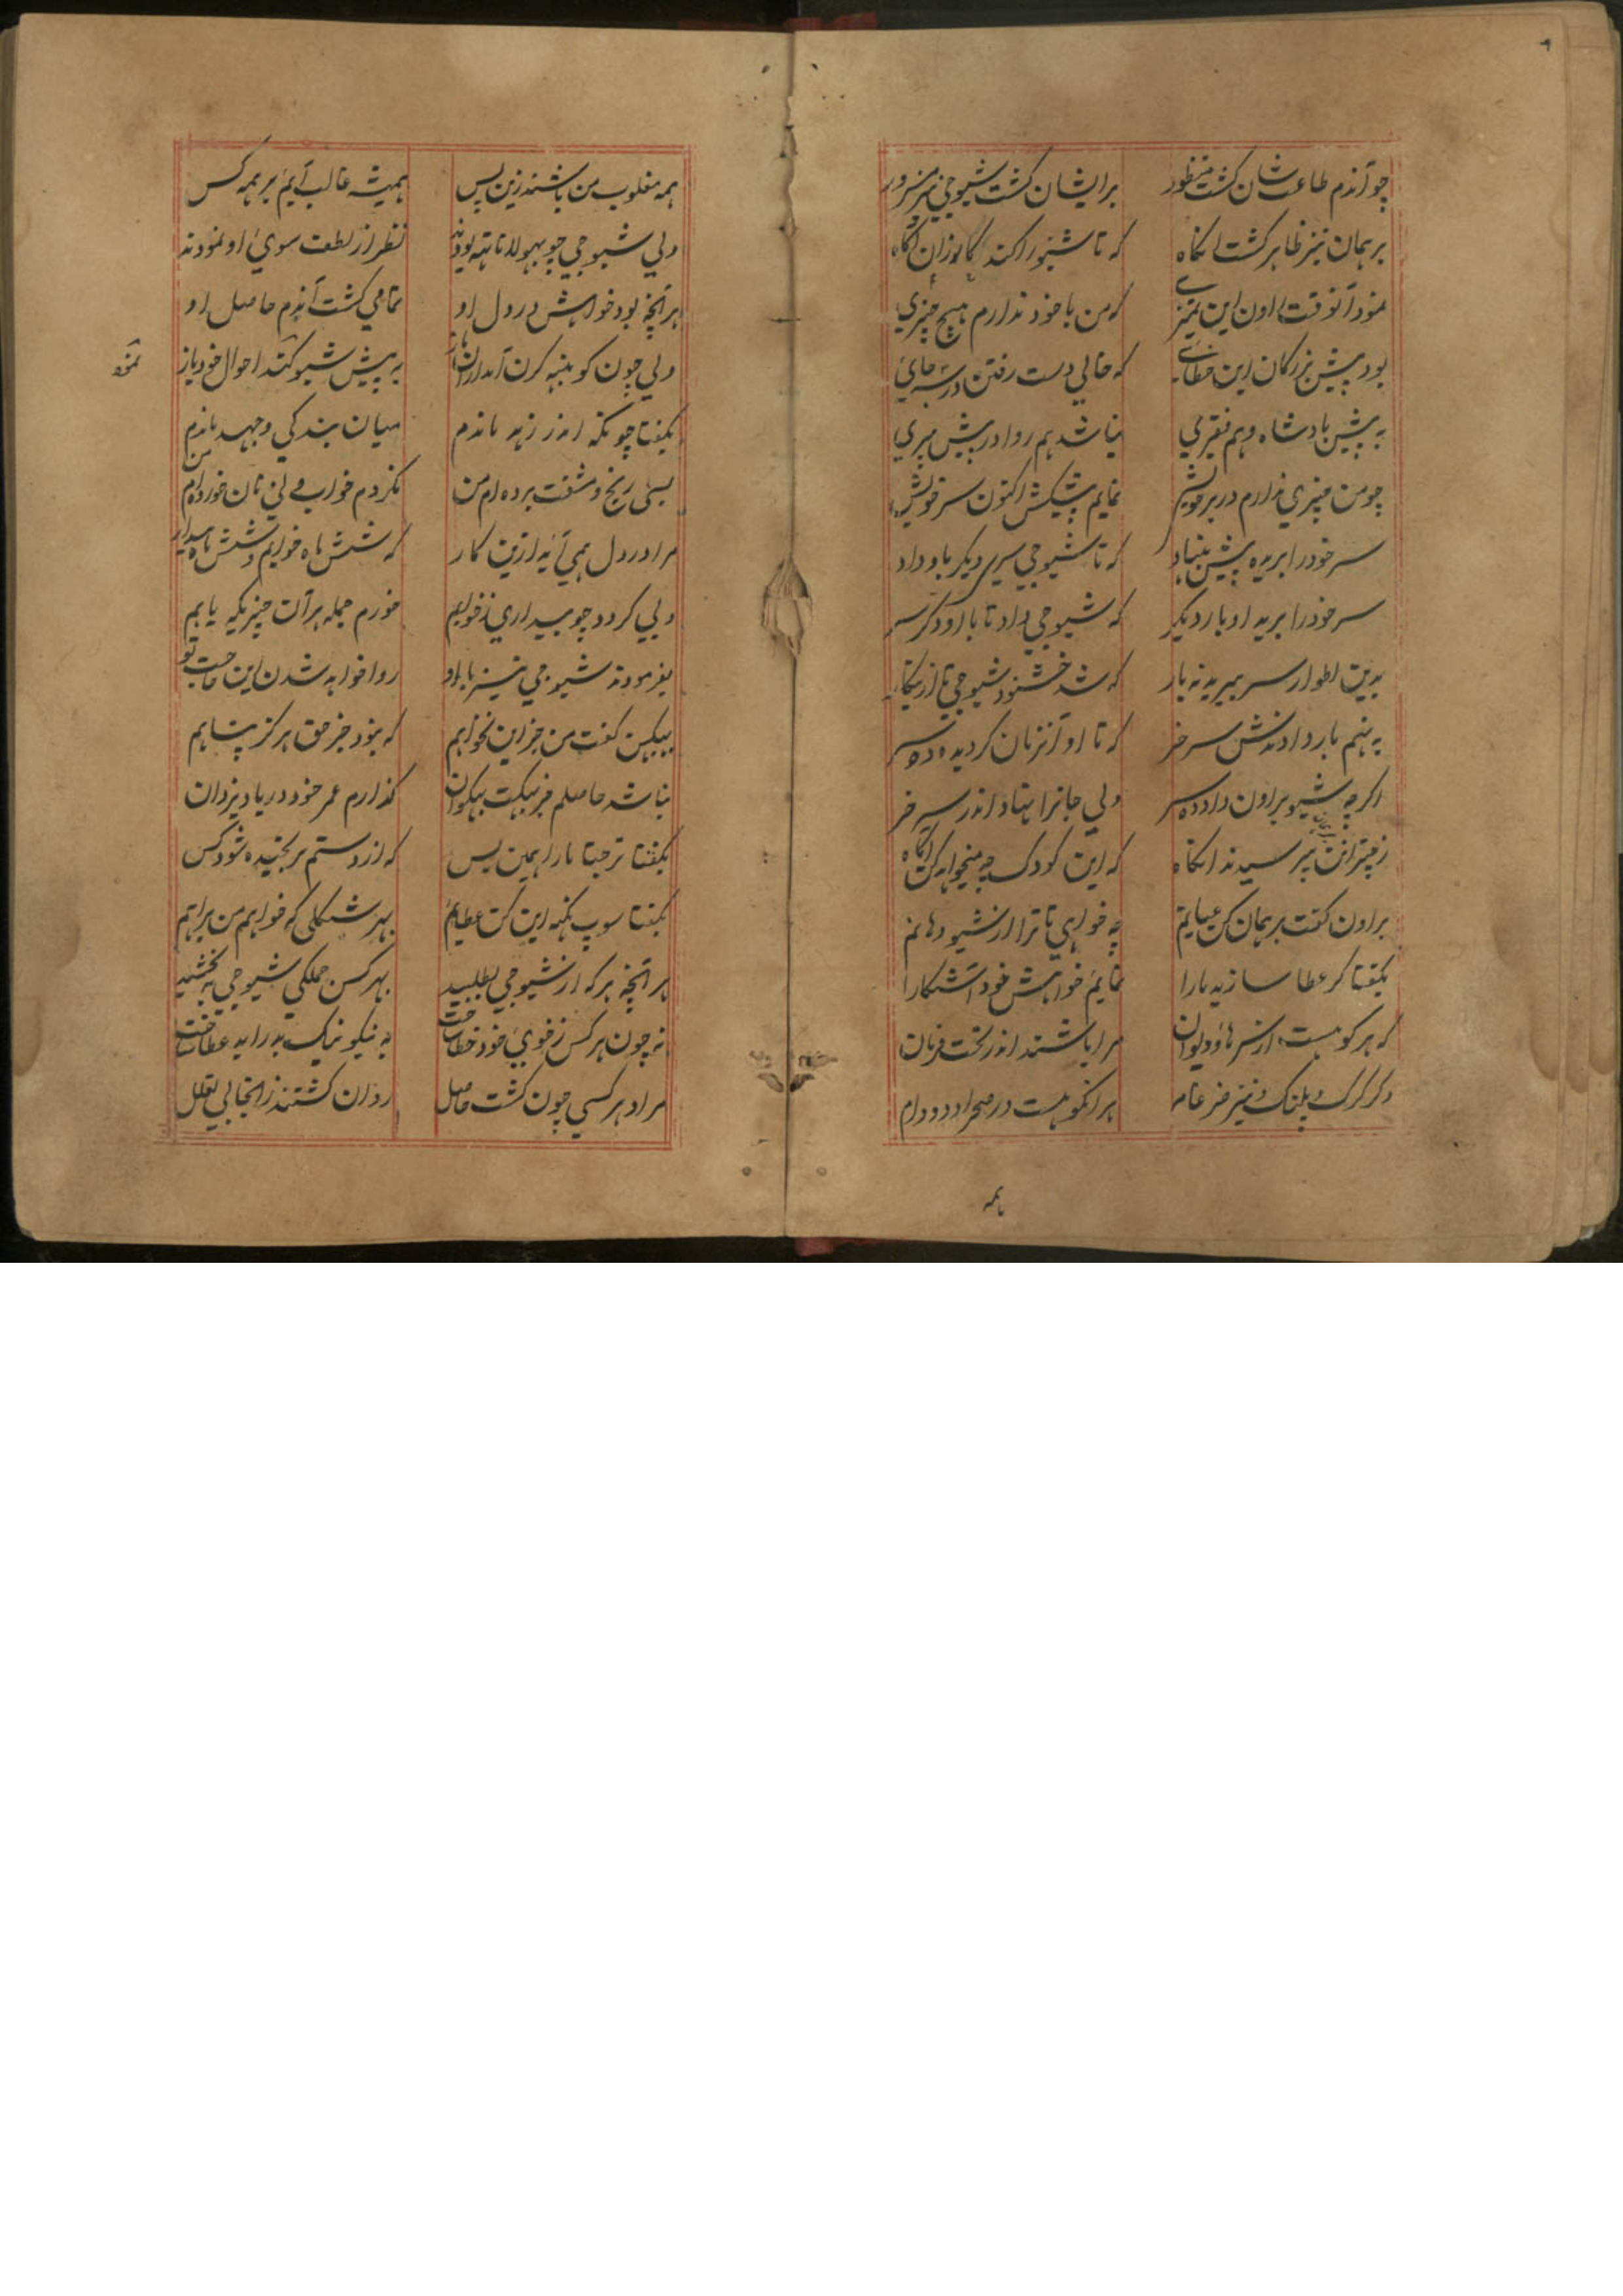 چو آندم طاعت شان گشت منظور برایشان گشت شیوجی نیز مسرور
برهمان نیز ظاهر گشت انگاه که تا شیو را کند
نمود آنوقت راون این تمیزی که من با خود ندارم هیچ چیزی
بود پیش بزرگان این خطائے که خالی دست رفتن در سه جائ
به پیش بادشاه و هم فقیری نباشد هم روا در پیش پیری
چو من چیزی ندارم در بر خویش نمایم پیشکش اکنون سر خویش
سر خود را بریده پیش بنهاد که تا شیوجی سری دیگر باو داد
سر خود را بریده او بار دیگر که شیوجی داد تا با او دگر سر
بدین اطوار سر ببریده نه بار که شد خشنود شیوجی
به نهم بار دادندش سر خر که تا او آنزمان گردیده ده سر
اگرچه شیو براون داد ده سر ولی جانرا نهاد اندر سر خر
پرسیدند انگاه که این کودک چه میخواهد
براون گفت برهمان کن عیانم چه خواهی تا ترا از شیو دهانم
بگفتا گر عطا سازید مارا نمایم خواهش خود آشکارا
که هر کو هست از سرها و دیوان مرا باشند اندر تحت فرمان
دگر گرگ و پلنگ و نیز ضرغام هر انکو هست در صحرا دد و دام
بهمه
همه مغلوب من باشند زین پس همیشه غالب آیم بر همه کس
ولی شیوجی چو بهولاناتهه بودند نظر از لطف سوی او نمودند
هر آنچه بود خواهش در دل او تمامی گشت آندم حاصل او
ولی چون کونبهه کرن آمد به پیش شیو کند احوال خود باز
بگفتا چونکه اندر زهد ماندم میان بندگی و جهد ماندم
بسی رنج و مشقت برده ام من نکردم خواب و نی نان خورده ام من
مرا در دل همی آید ازین کار که شش ماه خوابم و شش ماه بیدار
ولی گردد چو بیداری ز خوابم خورم جمله هر آن چیزیکه یابم
بفرمودند شیوجی نیز با او روا خواهد شدن این حاجت تو
ببیکهن گفت من جز این نخواهم که نبود جز حق هرگز پناهم
نباشد حاصلم جز بهگت بهگوان گذارم عمر خود در یاد یزدان
بگفتا ترجتا مارا همین بس که از دستم بر کس
بگفتا سوپ نکهه این کن عطایم بهر شکلی که خواهم من برایم
هر آنچه هر که از شیوجی بطلبید بهر کس جملگی شیوجی ببخشید
نه چون هر کس ز خوی خود خطا به نیکو نیک بد را بد عطا
مراد هر کسی چون گشت حاصل روان گشتند زانجا بی تعلل